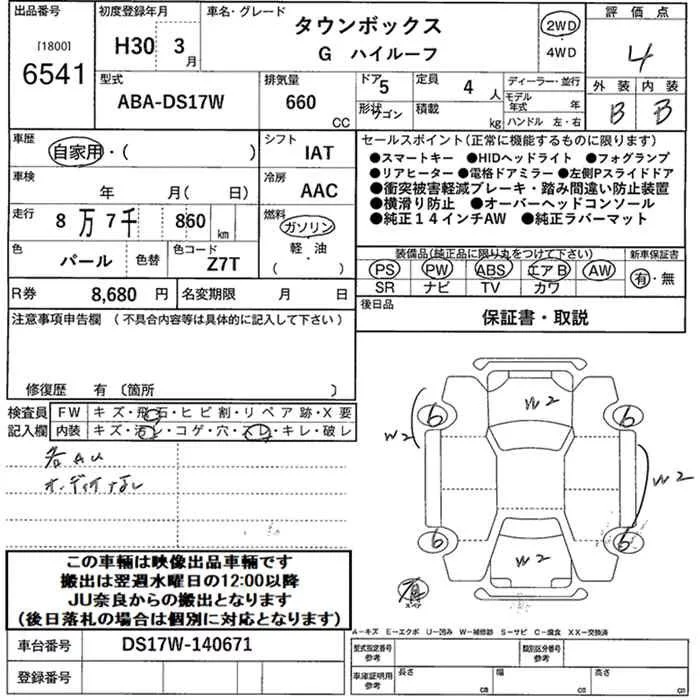 出品番号 初度登録年月 車名・グレード 評価点
[1800] H30 3月 タウンボックス 2WD 4
6541 G ハイルーフ 4WD
型式 排気量 ドア 5 定員 4人 ディーラー・並行 外装 内装
ABA-DS17W 660 CC 形状 ワゴン 積載 kg モデル年式 年 B B
ハンドル 左・右
車歴 シフト セールスポイント(正常に機能するものに限ります)
自家用・( ) IAT ●スマートキー ●HIDヘッドライト ●フォグランプ
車検 冷房 ●リアヒーター ●電格ドアミラー ●左側Pスライドドア
年 月( 日) AAC ●衝突被害軽減ブレーキ・踏み間違い防止装置
走行 燃料 ●横滑り防止 ●オーバーヘッドコンソール
8万7千 860 km ガソリン ●純正14インチAW ●純正ラバーマット
色 色替 色コード 軽・油 装備品(純正品に限り丸をつけて下さい) 新車保証書
パール Z7T ( ) PS PW ABS エアB AW 有・無
SR ナビ TV カワ
R券 8,680 円 名変期限 月 日 後日品
注意事項申告欄 (不具合内容等は具体的に記入して下さい) 保証書・取説
修復歴 有 〔箇所 〕
検査員 FW キズ・飛石・ヒビ割・リペア跡・X要
記入欄 内装 キズ・汚レ・コゲ・穴・スレ・キレ・破レ
W2
6 6
W2 W2
各AU
オーディオなし
6 6
W2
この車輌は映像出品車輌です
搬出は翌週水曜日の12:00以降
JU奈良からの搬出となります
(後日落札の場合は個別に対応となります)
A-キズ E-エクボ U-凹み W-補修跡 S-サビ C-腐食 XX-交換済
車台番号 DS17W-140671 型式指定番号 参考 類別区分番号 参考
登録番号 車庫証明用 参考 長さ cm 幅 cm 高さ cm